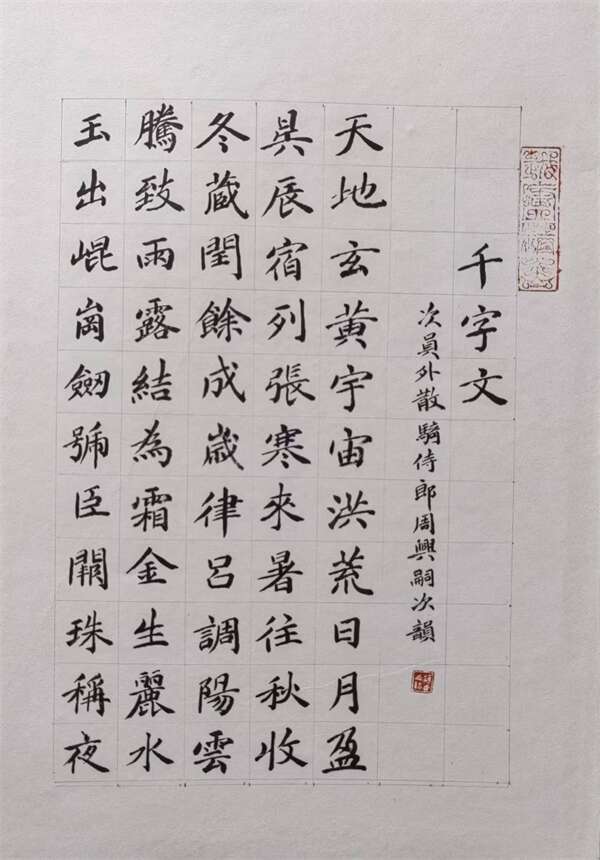 千字文
次員外散騎侍郎周興嗣次韻
天地玄黃宇宙洪荒日月盈
昃辰宿列張寒來暑往秋收
冬蔵閏餘成歲律呂調陽雲
騰致雨露結為霜金生麗水
玉出崐崗劒號巨闕珠稱夜